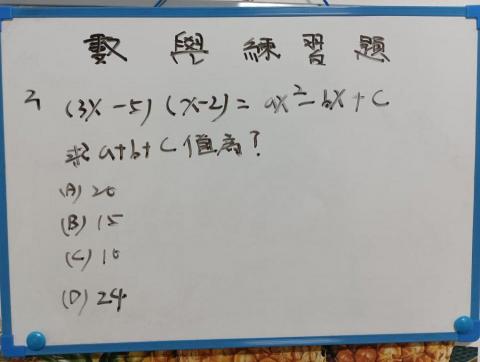 數學練習題
2, (3x-5)(x-2)=ax²-bx+c
求a+b+c值為?
(A) 20
(B) 15
(C) 10
(D) 24